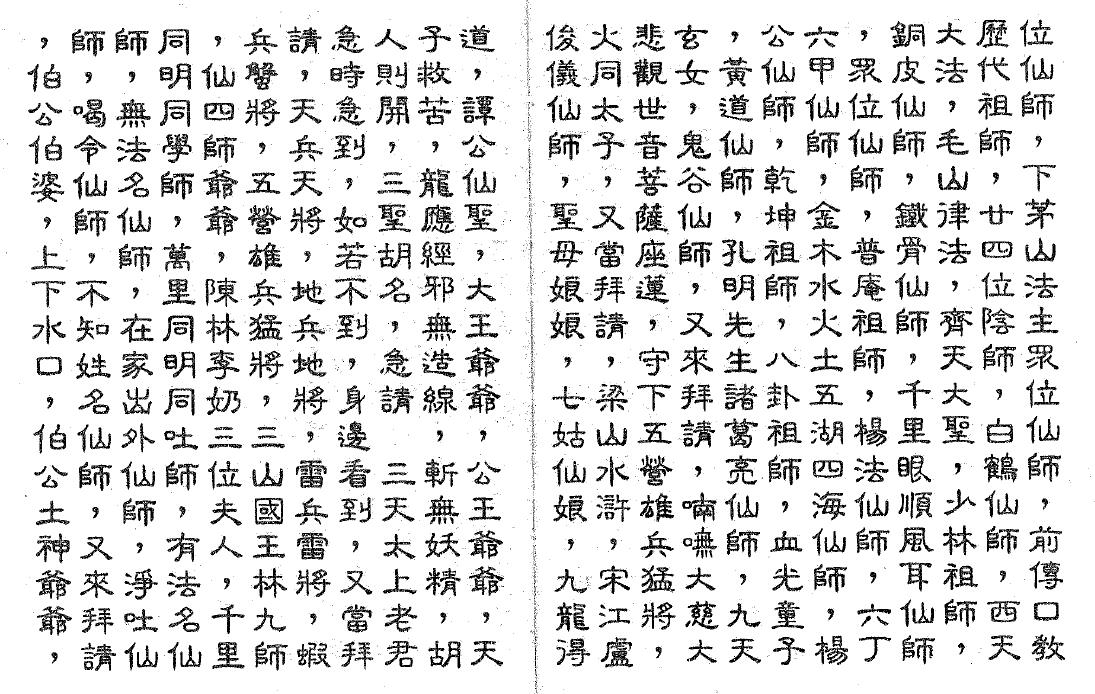 位仙師，下茅山法主眾位仙師，前傳口教
歷代祖師，廿四位陰師，白鶴仙師，西天
大法，毛山律法，齊天大聖，少林祖師，
銅皮仙師，鐵骨仙師，千里眼順風耳仙師
，眾位仙師，普庵祖師，楊法仙師，六丁
六甲仙師，金木水火土五湖四海仙師，楊
公仙師，乾坤祖師，八卦祖師，血光童子
，黃道仙師，孔明先生諸葛亮仙師，九天
玄女，鬼谷仙師，又來拜請，喃嘸大慈大
悲觀世音菩薩座蓮，守下五營雄兵猛將，
火同太子，又當拜請，梁山水滸，宋江盧
俊儀仙師，聖母娘娘，七姑仙娘，九龍得
道，譚公仙聖，大王爺爺，公王爺爺，天
子救苦，龍應經邪無造線，斬無妖精，胡
人則開，三聖胡名，急請　三天太上老君
急時急到，如若不到，身邊看到，又當拜
請，天兵天將，地兵地將，雷兵雷將，蝦
兵蟹將，五營雄兵猛將，三山國王林九師
，仙四師爺爺，陳林李奶三位夫人，千里
同明同學師，萬里同明同吐師，有法名仙
師，無法名仙師，在家出外仙師，淨吐仙
師，喝令仙師，不知姓名仙師，又來拜請
，伯公伯婆，上下水口，伯公土神爺爺，